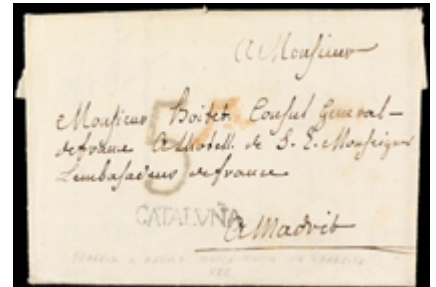 A Monsieur
Monsieur Boitet Consul General
de france A Lhotell. de S. E. Monseigneur
Lembasadeur de france
5
CATALUÑA
A Madrit